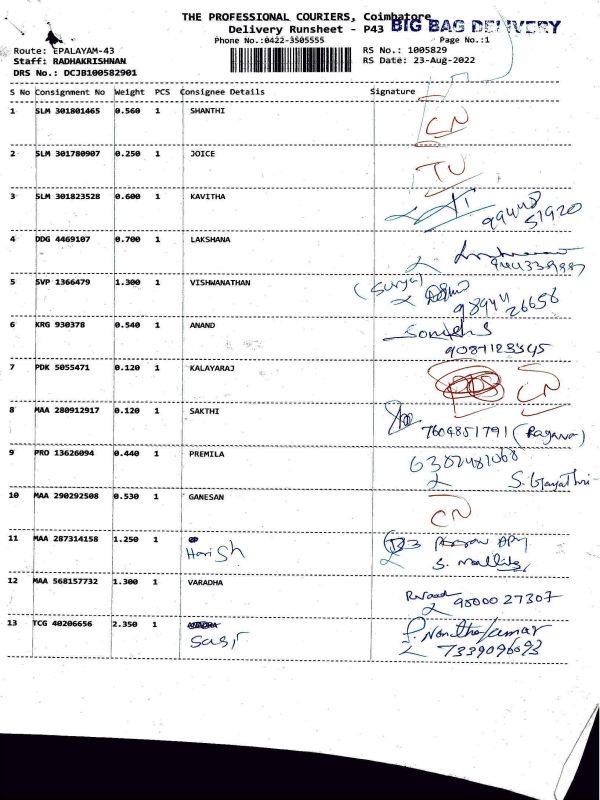 THE PROFESSIONAL COURIERS, Coimbatore
Delivery Runsheet - P43 BIG BAG DELIVERY
Phone No.:0422-3505555 Page No.:1
Route: EPALAYAM-43 RS No.: 1005829
Staff: RADHAKRISHNAN RS Date: 23-Aug-2022
DRS No.: DCJB100582901
S No Consignment No Weight PCS Consignee Details Signature
1 SLM 301801465 0.560 1 SHANTHI CN
2 SLM 301780907 0.250 1 JOICE TU
3 SLM 301823528 0.600 1 KAVITHA
51920
4 DDG 4469107 0.700 1 LAKSHANA
5 SVP 1366479 1.300 1 VISHWANATHAN (Surya)
98944 26658
6 KRG 930378 0.540 1 ANAND
9087123345
7 PDK 5055471 0.120 1 KALAYARAJ CN
8 MAA 280912917 0.120 1 SAKTHI
7604851791
9 PRO 13626094 0.440 1 PREMILA 6382481068
S. Gayathri
10 MAA 290292508 0.530 1 GANESAN CN
11 MAA 287314158 1.250 1
Harish
12 MAA 568157732 1.300 1 VARADHA
90000 27307
13 TCG 40206656 2.350 1
Sasi P. Nanthakumar
7339096093